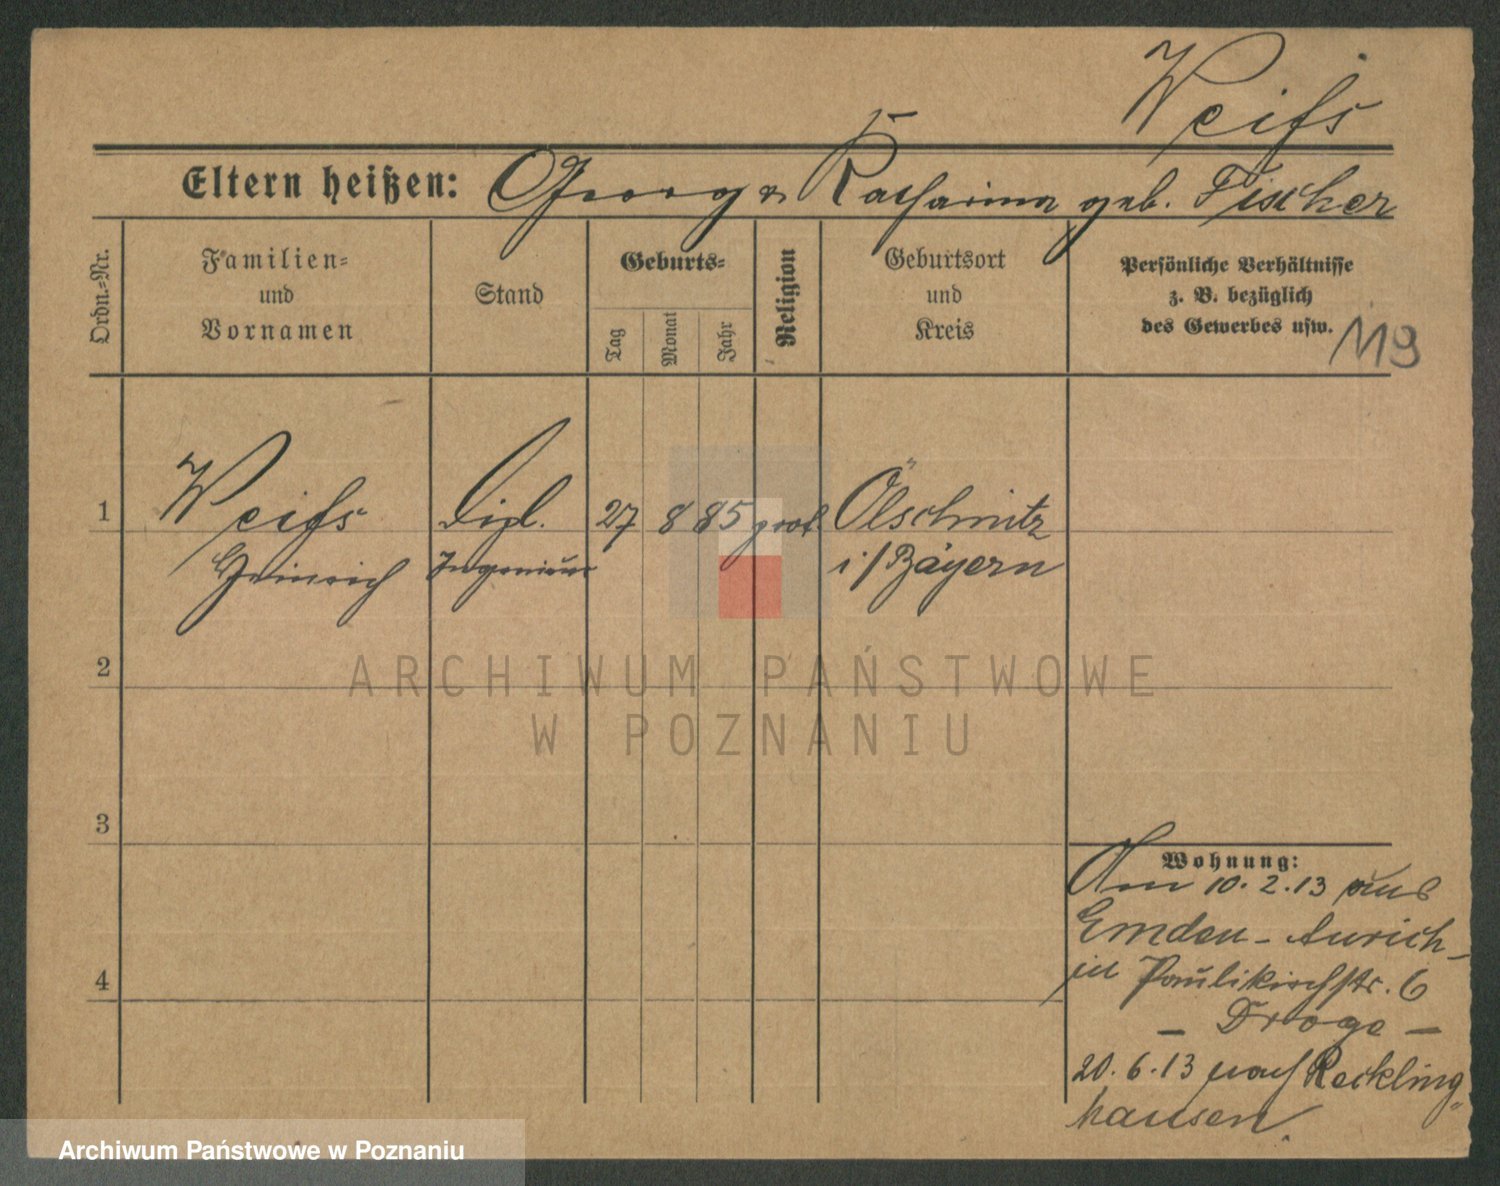 Weiſs
Eltern heißen: Georg & Katharina geb. Fischer
Ordn.-Nr.
Familien-
und
Vornamen
Stand
Geburts-
Tag
Monat
Jahr
Religion
Geburtsort
und
Kreis
Persönliche Verhältnisse
z. B. bezüglich
des Gewerbes usw.
119
1
Weiſs
Heinrich
Dipl.
Ingenieur
27 8 85 prot.
Ölschnitz
i/Bayern
2
ARCHIWUM PAŃSTWOWE
W POZNANIU
3
4
Wohnung:
Am 10.2.13 aus
Emden - Aurich -
in Paulikirchstr. 6
- Droge -
20.6.13 nach Reckling
hausen.
Archiwum Państwowe w Poznaniu